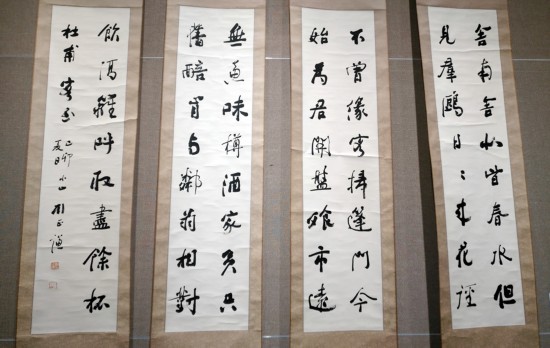 舍南舍北皆春水但
見羣鷗日〻來花徑
不曾緣客掃蓬門今
始為君開盤飧市遠
無兼味樽酒家貧只
舊醅肯與鄰翁相對
飲隔籬呼取盡餘杯
杜甫客至
己卯
夏日